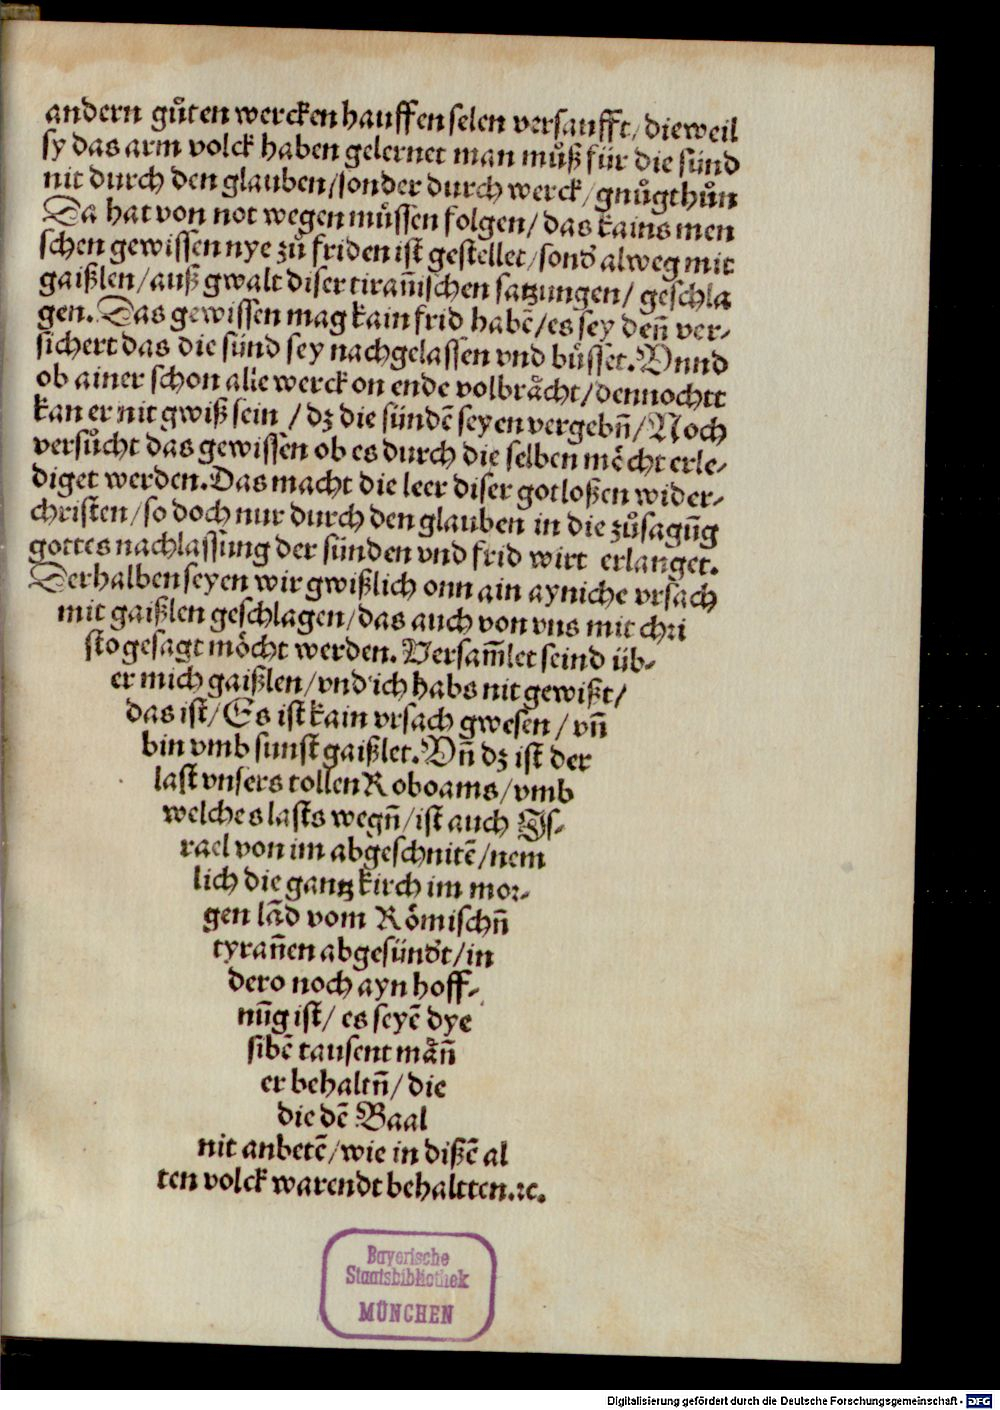 andern gůten wercken hauffen selen versaufft/ dieweil
sy das arm volck haben gelernet man můß für die sünd
nit durch den glauben/sonder durch werck/gnůgthůn
Da hat von not wegen můssen folgen/ das kains men
schen gewissen nye zů friden ist gestellet/sonď alweg mit
gaißlen/auß gwalt diser tiran̄ischen satzungen/ geschla
gen. Das gewissen mag kain frid habē/es sey den̄ ver-
sichert das die sünd sey nachgelassen vnd bůsset. Vnnd
ob ainer schon alle werck on ende volbrächt/dennochtt
kan er nit gwiß sein / dz die sündē seyen vergebn̄/Noch
versůcht das gewissen ob es durch die selben möcht erle-
diget werden. Das macht die leer diser gotloßen wider-
christen/so doch nur durch den glauben in die zůsagūg
gottes nachlassung der sünden vnd frid wirt erlanget.
Derhalben seyen wir gwißlich onn ain ayniche vrsach
mit gaißlen geschlagen/das auch von vns mit chri
sto gesagt möcht werden. Versam̄let seind üb-
er mich gaißlen/vnd ich habs nit gewißt/
das ist/ Es ist kain vrsach gwesen / vn̄
bin vmb sunst gaißlet. Vn̄ dz ist der
last vnsers tollen Roboams/vmb
welches lasts wegn̄/ist auch Is-
rael von im abgeschnitē/nem
lich die gantz kirch im mor-
gen lād vom Römischn̄
tyran̄en abgesünďt/in
dero noch ayn hoff-
nūg ist/ es seyē dye
sibē tausent män̄
er behaltn̄/ die
die dē Baal
nit anbetē/wie in dißē al
ten volck warendt behaltten.ꝛc.
Bayerische
Staatsbibliothek
MÜNCHEN
Digitalisierung gefördert durch die Deutsche Forschungsgemeinschaft - DFG